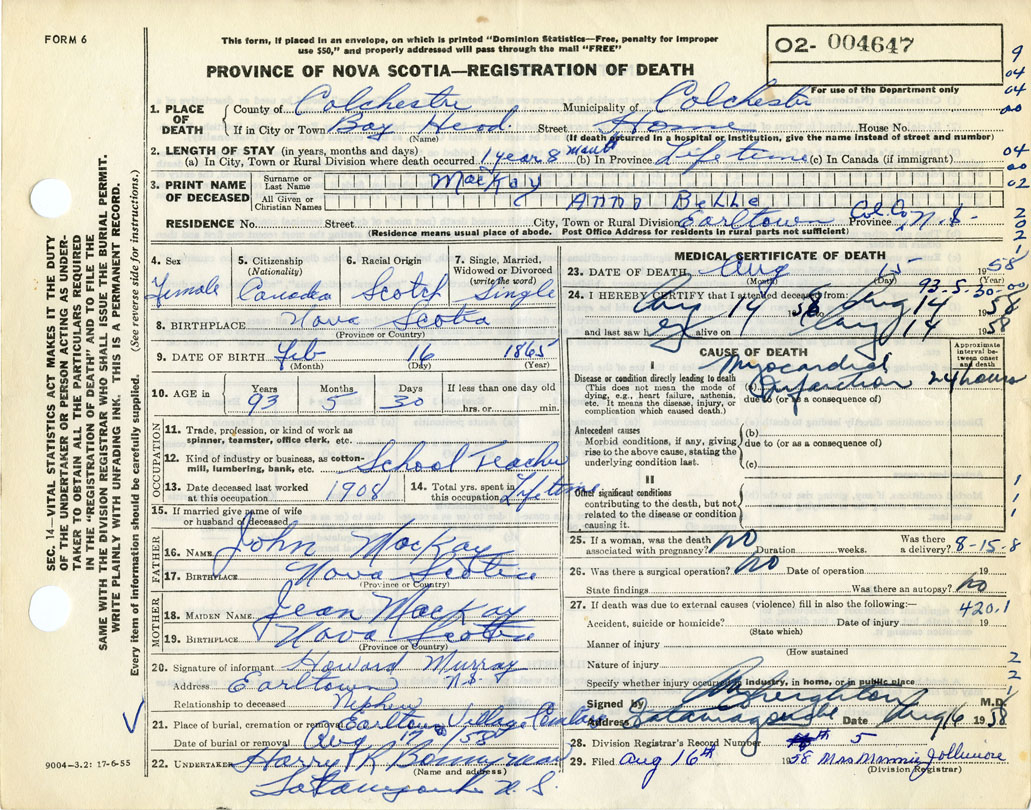 FORM 6
This form, if placed in an envelope, on which is printed "Dominion Statistics—Free, penalty for improper
use $50," and properly addressed will pass through the mail "FREE"
O2- 004647
For use of the Department only
PROVINCE OF NOVA SCOTIA—REGISTRATION OF DEATH
1. PLACE OF DEATH
County of Colchester Municipality of Colchester
If in City or Town Bay Head. Street Home House No.
(Name) (If death occurred in a hospital or institution, give the name instead of street and number)
2. LENGTH OF STAY (in years, months and days)
(a) In City, Town or Rural Division where death occurred 1 year 8 month (b) In Province Lifetime (c) In Canada (if immigrant)
3. PRINT NAME OF DECEASED
Surname or Last Name MacKay
All Given or Christian Names Anna Belle
RESIDENCE No. Street City, Town or Rural Division Earltown Col. Co Province N.S.
(Residence means usual place of abode. Post Office Address for residents in rural parts not sufficient)
4. Sex Female
5. Citizenship (Nationality) Canada
6. Racial Origin Scotch
7. Single, Married, Widowed or Divorced (write the word) Single
8. BIRTHPLACE Nova Scotia
(Province or Country)
9. DATE OF BIRTH Feb 16 1865
(Month) (Day) (Year)
10. AGE in Years 93 Months 5 Days 30 If less than one day old
hrs. or min.
OCCUPATION
11. Trade, profession, or kind of work as
spinner, teamster, office clerk, etc.
12. Kind of industry or business, as cotton-
mill, lumbering, bank, etc. School Teacher
13. Date deceased last worked at this occupation 1908
14. Total yrs. spent in this occupation Lifetime
15. If married give name of wife
or husband of deceased
FATHER
16. NAME John MacKay
17. BIRTHPLACE Nova Scotia
(Province or Country)
MOTHER
18. MAIDEN NAME Jean MacKay
19. BIRTHPLACE Nova Scotia
(Province or Country)
20. Signature of informant Howard Murray
Address Earltown N.S.
Relationship to deceased Nephew
21. Place of burial, cremation or removal Earltown Village
Date of burial or removal Aug 17 1958
22. UNDERTAKER Harry K Bonnyman
(Name and address)
N.S.
MEDICAL CERTIFICATE OF DEATH
23. DATE OF DEATH Aug 15 1958
(Month) (Day) (Year)
93-5-30-00
24. I HEREBY CERTIFY that I attended deceased from:
Aug 14 1958 to Aug 14 1958
and last saw h er alive on Aug 14 1958
CAUSE OF DEATH
Approximate interval between onset and death
I
Disease or condition directly leading to death
(This does not mean the mode of
dying, e.g., heart failure, asthenia,
etc. It means the disease, injury, or
complication which caused death.)
(a) Myocardial Infarction 24 hours
due to (or as a consequence of)
Antecedent causes
Morbid conditions, if any, giving
rise to the above cause, stating the
underlying condition last.
(b)
due to (or as a consequence of)
(c)
II
Other significant conditions
contributing to the death, but not
related to the disease or condition
causing it.
25. If a woman, was the death
associated with pregnancy? No Duration weeks. Was there a delivery? 8-15-8
26. Was there a surgical operation? No Date of operation 19
State findings Was there an autopsy? No
27. If death was due to external causes (violence) fill in also the following:— 420.1
Accident, suicide or homicide? Date of injury 19
(State which)
Manner of injury
(How sustained
Nature of injury
Specify whether injury occurred in industry, in home, or in public place
Signed by Creighton M.D.
Address Tatamagouche Date Aug 16 1958
28. Division Registrar's Record Number 5
29. Filed Aug 16th 1958 Mrs Minnie Jollimore
(Division Registrar)
SEC. 14—VITAL STATISTICS ACT MAKES IT THE DUTY
OF THE UNDERTAKER OR PERSON ACTING AS UNDER-
TAKER TO OBTAIN ALL THE PARTICULARS REQUIRED
IN THE "REGISTRATION OF DEATH" AND TO FILE THE
SAME WITH THE DIVISION REGISTRAR WHO SHALL ISSUE THE BURIAL PERMIT.
WRITE PLAINLY WITH UNFADING INK. THIS IS A PERMANENT RECORD.
Every item of information should be carefully supplied. (See reverse side for instructions.)
9004—3.2: 17-6-55
9
04
04
00
04
00
02
2
0
2
2
1
1
1
1
2
2
1